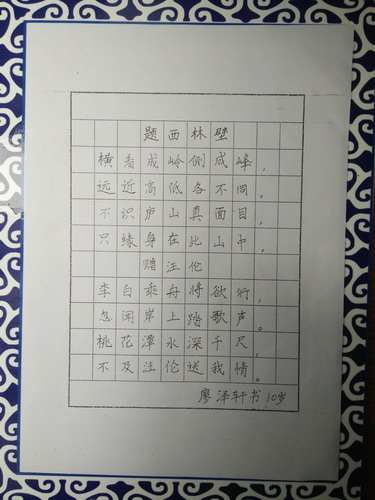 题西林壁
横看成岭侧成峰，
远近高低各不同。
不识庐山真面目，
只缘身在此山中。
赠汪伦
李白乘舟将欲行，
忽闻岸上踏歌声。
桃花潭水深千尺，
不及汪伦送我情。
廖泽轩书 10岁